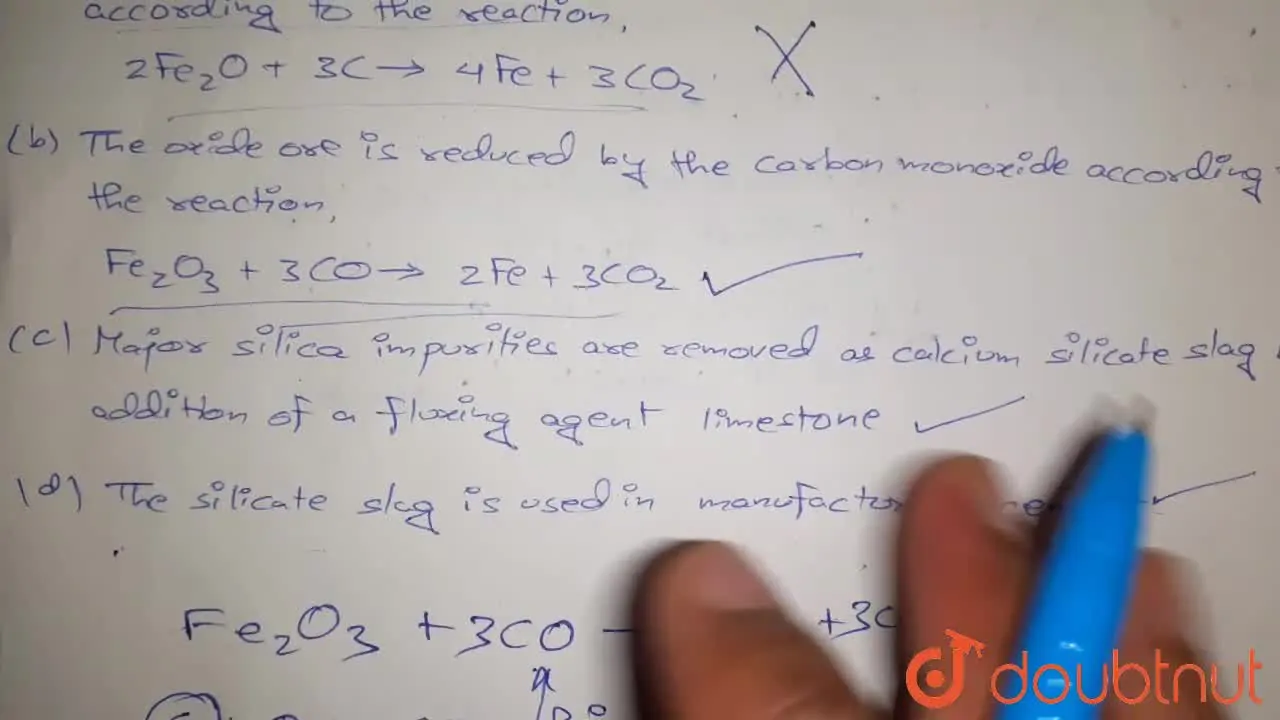 according to the reaction,
2Fe2O + 3C → 4Fe + 3CO2
(b) The oxide ore is reduced by the carbon monoxide according
the reaction,
Fe2O3 + 3CO → 2Fe + 3CO2 ✓
(c) Major silica impurities are removed as calcium silicate slag
addition of a fluxing agent limestone ✓
(d) The silicate slag is used in
Fe2O3 + 3CO
doubtnut